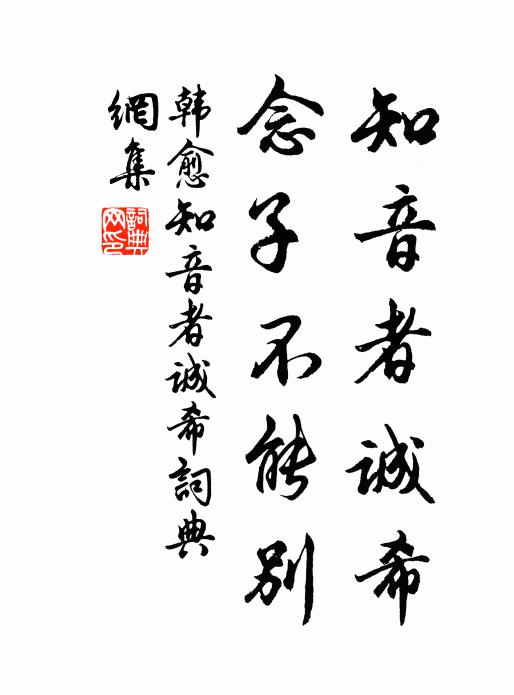 知音者誠希
念子不能別
韩愈知音者誠希詞典
網集
詞典
网印